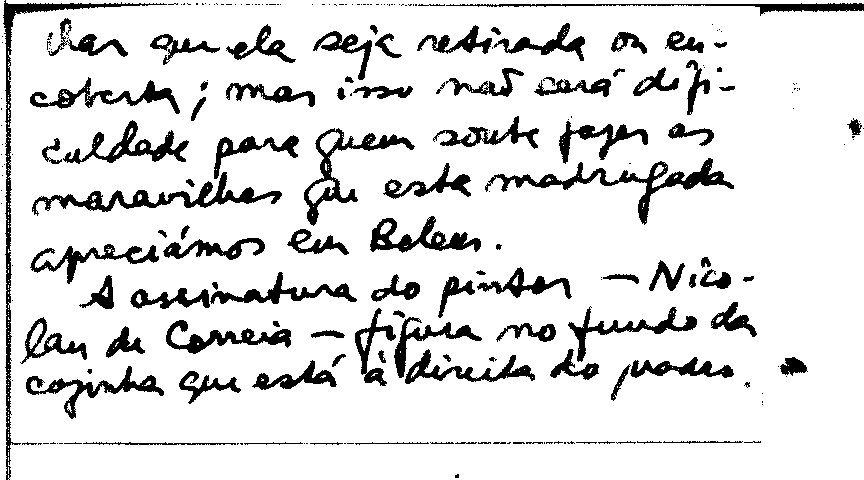 que ela seja retirada ou en-
coberta; mas isso não será difi-
culdade para quem soube fazer as
maravilhas que esta madrugada
apreciámos em Belem.
A assinatura do pintor — Nico-
lau de Correia — figura no fundo da
cozinha que está à direita do